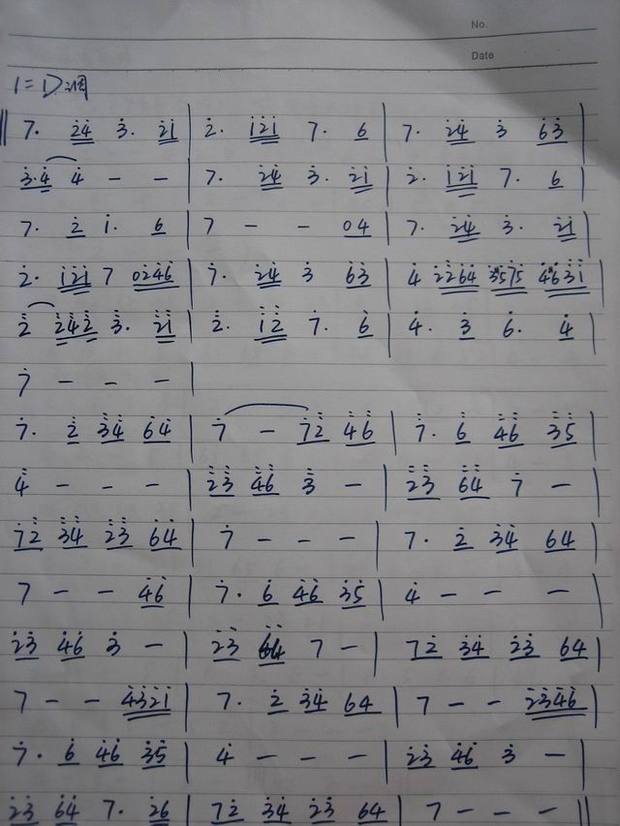 No.
Date
1=D调
‖ 7· 2̇4̇ 3̇· 2̇1̇ | 2̇· 1̇2̇1̇ 7· 6 | 7· 2̇4̇ 3̇ 63̇ |
3̇·4̇ 4̇ – – | 7· 2̇4̇ 3̇· 2̇1̇ | 2̇· 1̇2̇1̇ 7· 6 |
7· 2̇ 1̇· 6 | 7 – – 04 | 7· 2̇4̇ 3̇· 2̇1̇ |
2̇· 1̇2̇1̇ 7 0246 | 7̇· 2̇4̇ 3̇ 63̇ | 4̇ 2264 3575 4631 |
2̈ 2̈4̈2̈ 3̈· 2̈1̈ | 2̈· 1̈2̈ 7̇· 6̇ | 4̇· 3̇ 6̇· 4̇ |
7̇ – – – |
7̇· 2̈ 3̈4̈ 6̇4̇ | 7̇ – 7̇2̈ 4̈6̈ | 7̈· 6̈ 4̈6̈ 3̈5̈ |
4̈ – – – | 2̈3̈ 4̈6̈ 3̈ – | 2̈3̈ 6̈4̈ 7̇ – |
7̇2̈ 3̈4̈ 2̈3̈ 6̇4̇ | 7̇ – – – | 7· 2̇ 3̇4̇ 64 |
7 – – 4̇6̇ | 7̇· 6̇ 4̇6̇ 3̇5̇ | 4̇ – – – |
2̇3̇ 4̇6̇ 3̇ – | 2̇3̇ 6̇4̇ 7 – | 72̇ 3̇4̇ 2̇3̇ 64 |
7 – – 4̇3̇2̇1̇ | 7· 2̇ 3̇4̇ 64 | 7 – – 2̇3̇4̇6̇ |
7̇· 6̇ 4̇6̇ 3̇5̇ | 4̇ – – – | 2̇3̇ 4̇6̇ 3̇ – |
2̇3̇ 6̇4̇ 7· 2̇6 | 72̇ 3̇4̇ 2̇3̇ 64 | 7 – – – ‖